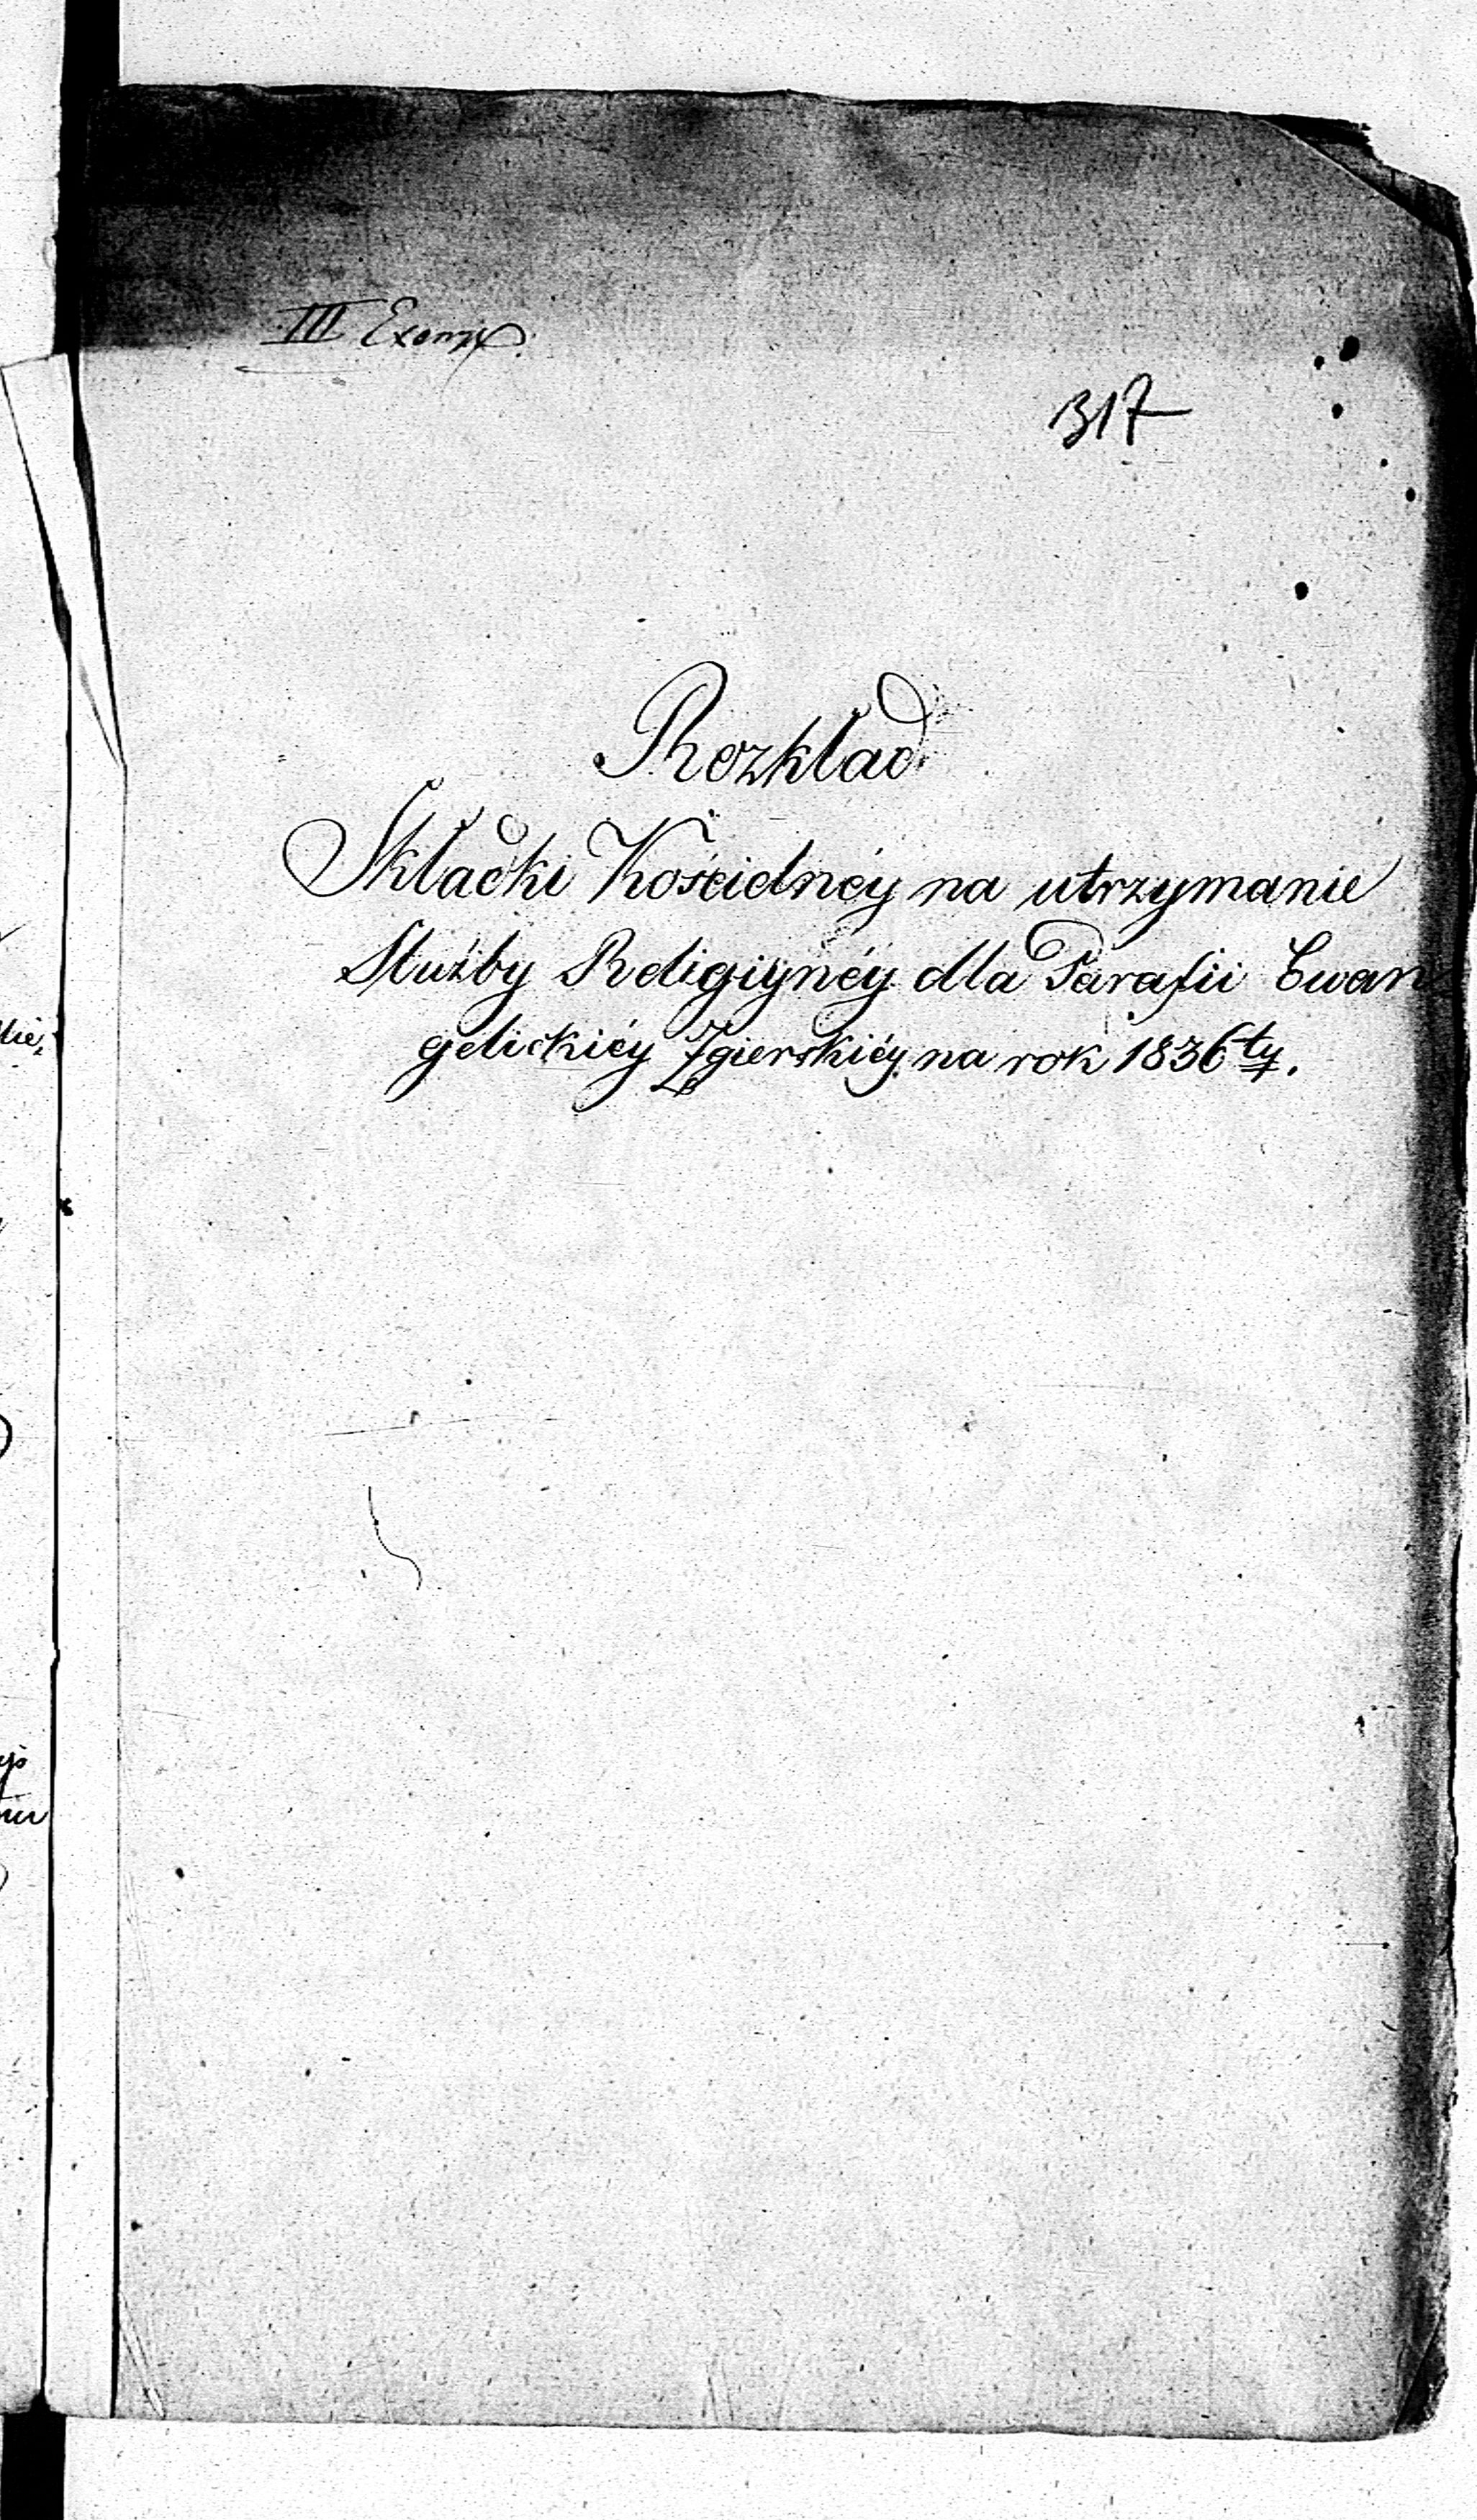 III Exempl.
317
Rozkład
Składki Kościelnéy na utrzymanie
Służby Religiynéy dla Parafii Ewan
gelickiéy Zgierskiéy na rok 1836ty.